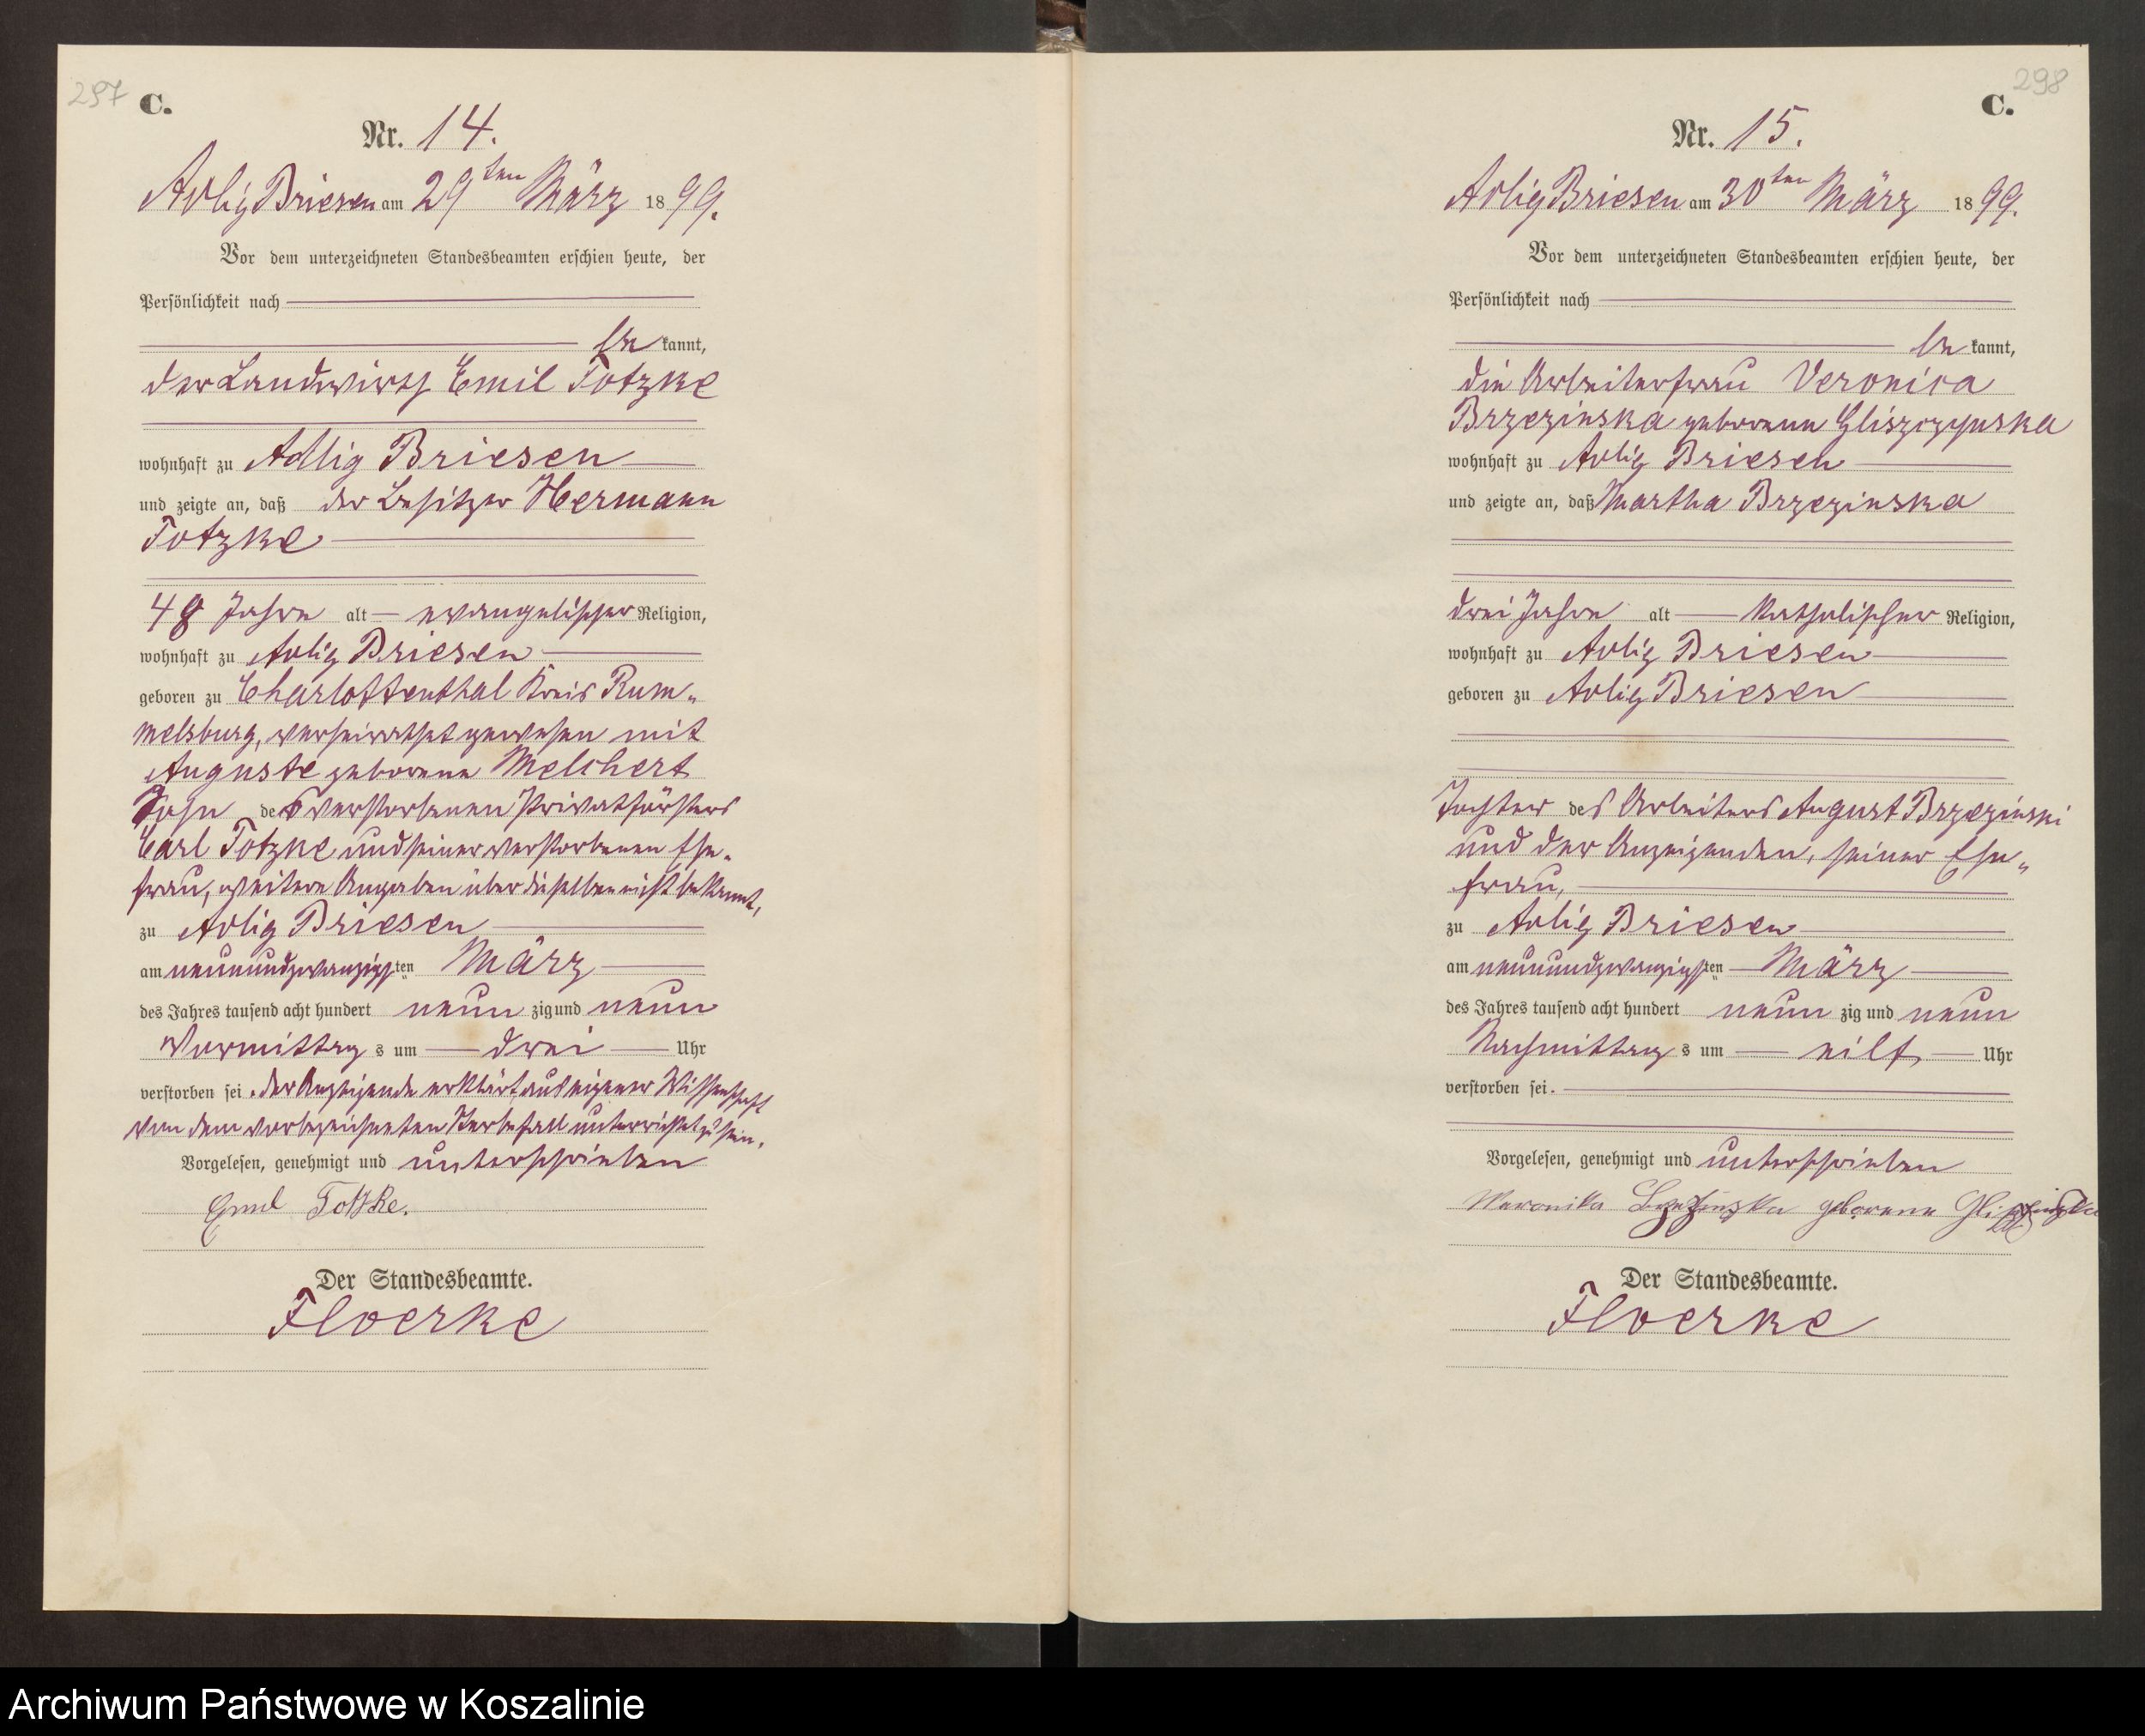 297
C.
Nr. 14.
Adlig Briesen am 29ten März 1899.
Vor dem unterzeichneten Standesbeamten erschien heute, der
Persönlichkeit nach
be kannt,
der Landwirth Emil Totzke
wohnhaft zu Adlig Briesen
und zeigte an, daß der Besitzer Hermann
Totzke
48 Jahre alt evangelischer Religion,
wohnhaft zu Adlig Briesen
geboren zu Charlottenthal Kreis Rum-
melsburg, verheirathet gewesen mit
Auguste geborene Melchert
Sohn des verstorbenen Privatförsters
Carl Totzke und seiner verstorbenen Ehe-
frau, weitere Angaben über dieselben nicht bekannt,
zu Adlig Briesen
am neunundzwanzigsten März
des Jahres tausend acht hundert neunzig und neun
Vormittags um drei Uhr
verstorben sei. der Anzeigende erklärt, aus eigener Wissenschaft
von dem vorbezeichneten Sterbefall unterrichtet zu sein.
Vorgelesen, genehmigt und unterschrieben
Emil Totzke.
Der Standesbeamte.
Floerke
298
C.
Nr. 15.
Adlig Briesen am 30ten März 1899.
Vor dem unterzeichneten Standesbeamten erschien heute, der
Persönlichkeit nach
be kannt,
die Arbeiterfrau Veronica
Brzezinska geborene Gliszczynska
wohnhaft zu Adlig Briesen
und zeigte an, daß Martha Brzezinska
drei Jahre alt katholischer Religion,
wohnhaft zu Adlig Briesen
geboren zu Adlig Briesen
Tochter des Arbeiters August Brzezinski
und der Anzeigenden, seiner Ehe-
frau,
zu Adlig Briesen
am neunundzwanzigsten März
des Jahres tausend acht hundert neunzig und neun
Nachmittags um eilf Uhr
verstorben sei.
Vorgelesen, genehmigt und unterschrieben
Weronika geborene
Der Standesbeamte.
Floerke
Archiwum Państwowe w Koszalinie